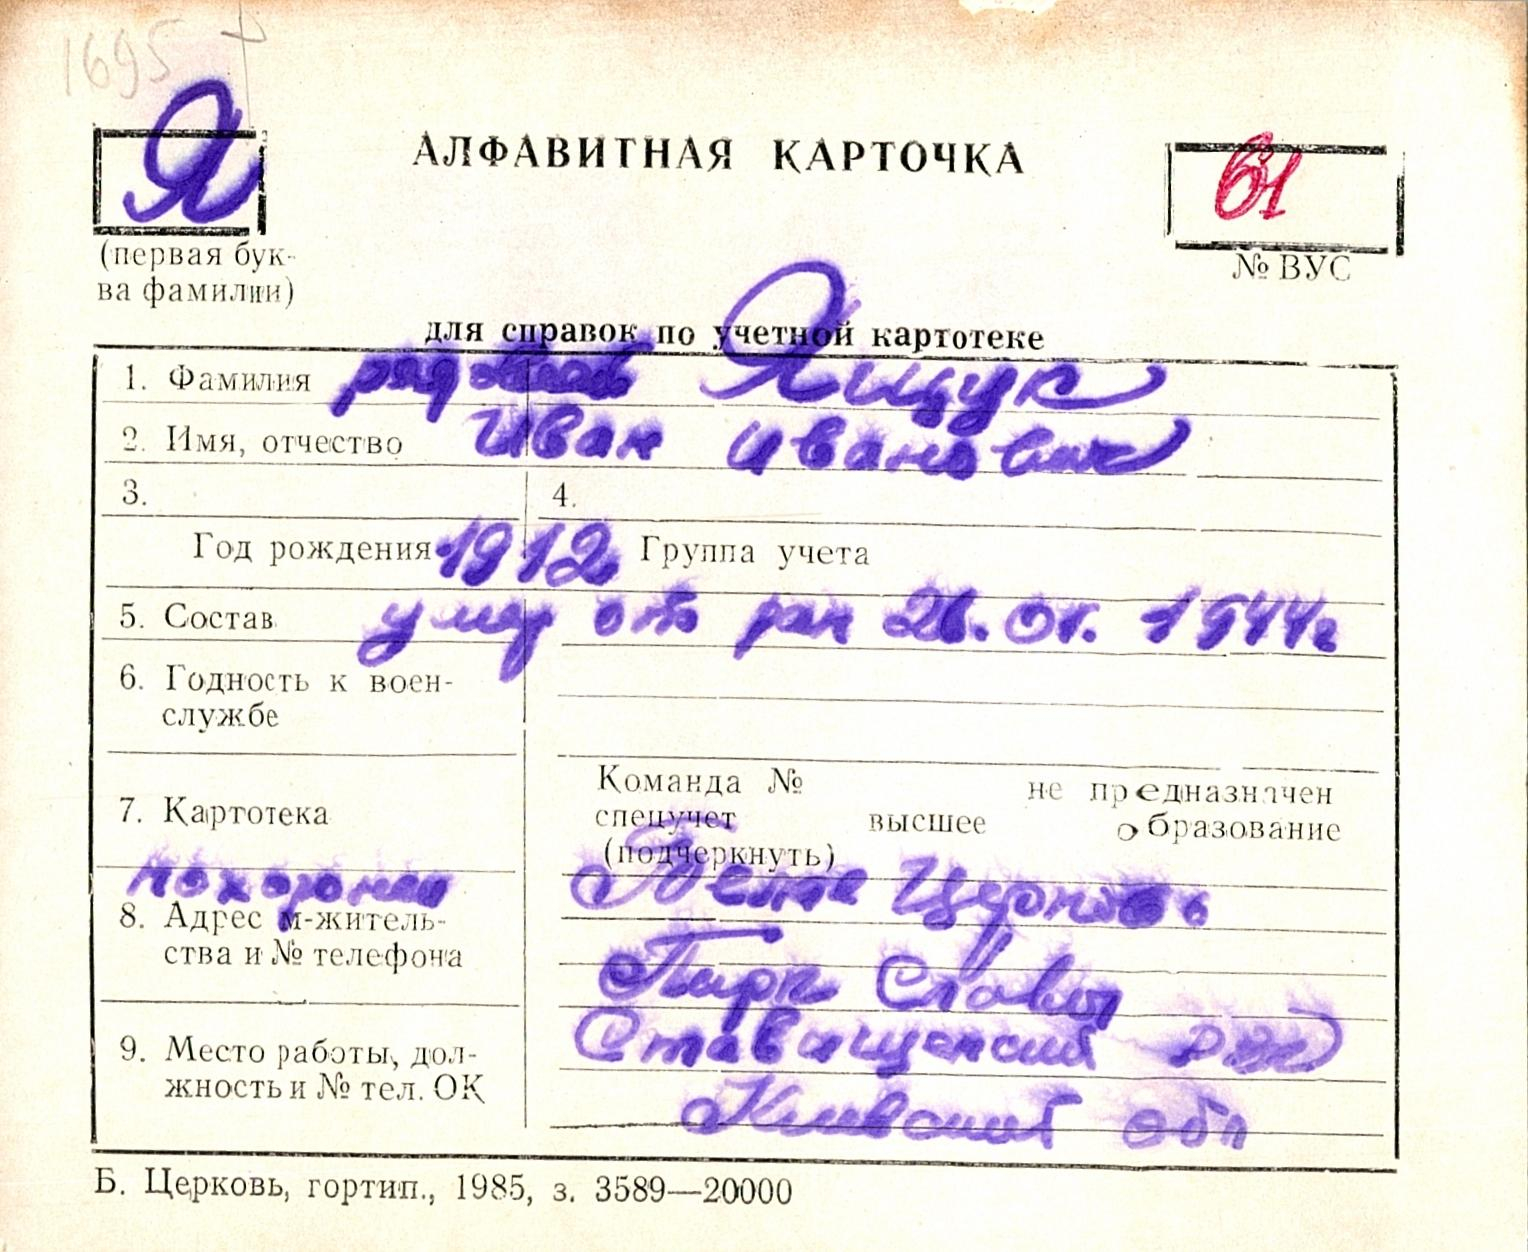 1695
Я
АЛФАВИТНАЯ КАРТОЧКА
61
(первая бук-
ва фамилии)
№ ВУС
для справок по учетной картотеке
1. Фамилия рядовой Ящук
2. Имя, отчество Иван Иванович
3. 4.
Год рождения 1912 Группа учета
5. Состав умер от ран 26.01.1944г
6. Годность к воен-
службе
7. Картотека
Команда № не предназначен
спецучет высшее образование
(подчеркнуть)
похоронен
Белая Церковь
8. Адрес м-житель-
ства и № телефона
Парк Славы
Ставищенский
9. Место работы, дол-
жность и № тел. ОК
Киевской обл
Б. Церковь, гортип., 1985, з. 3589—20000